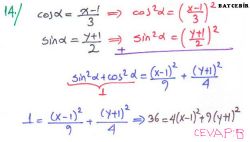 BATCEBİR
14/ cosα = (x-1)/3 ⇒ cos²α = ((x-1)/3)²
sinα = (y+1)/2 ⇒ sin²α = ((y+1)/2)²
+
sin²α + cos²α = (x-1)²/9 + (y+1)²/4
1
1 = (x-1)²/9 + (y+1)²/4 ⇒ 36 = 4(x-1)² + 9(y+1)²
CEVAP B